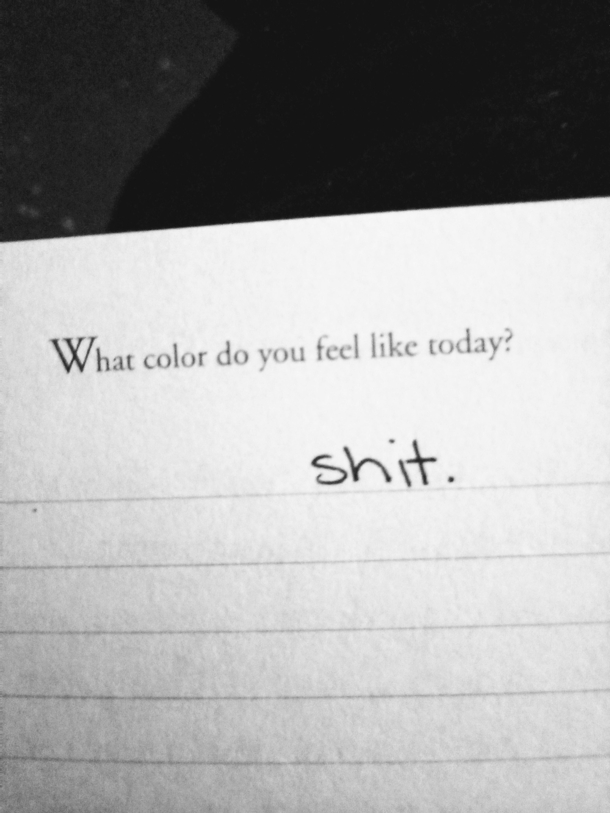 What color do you feel like today?
shit.